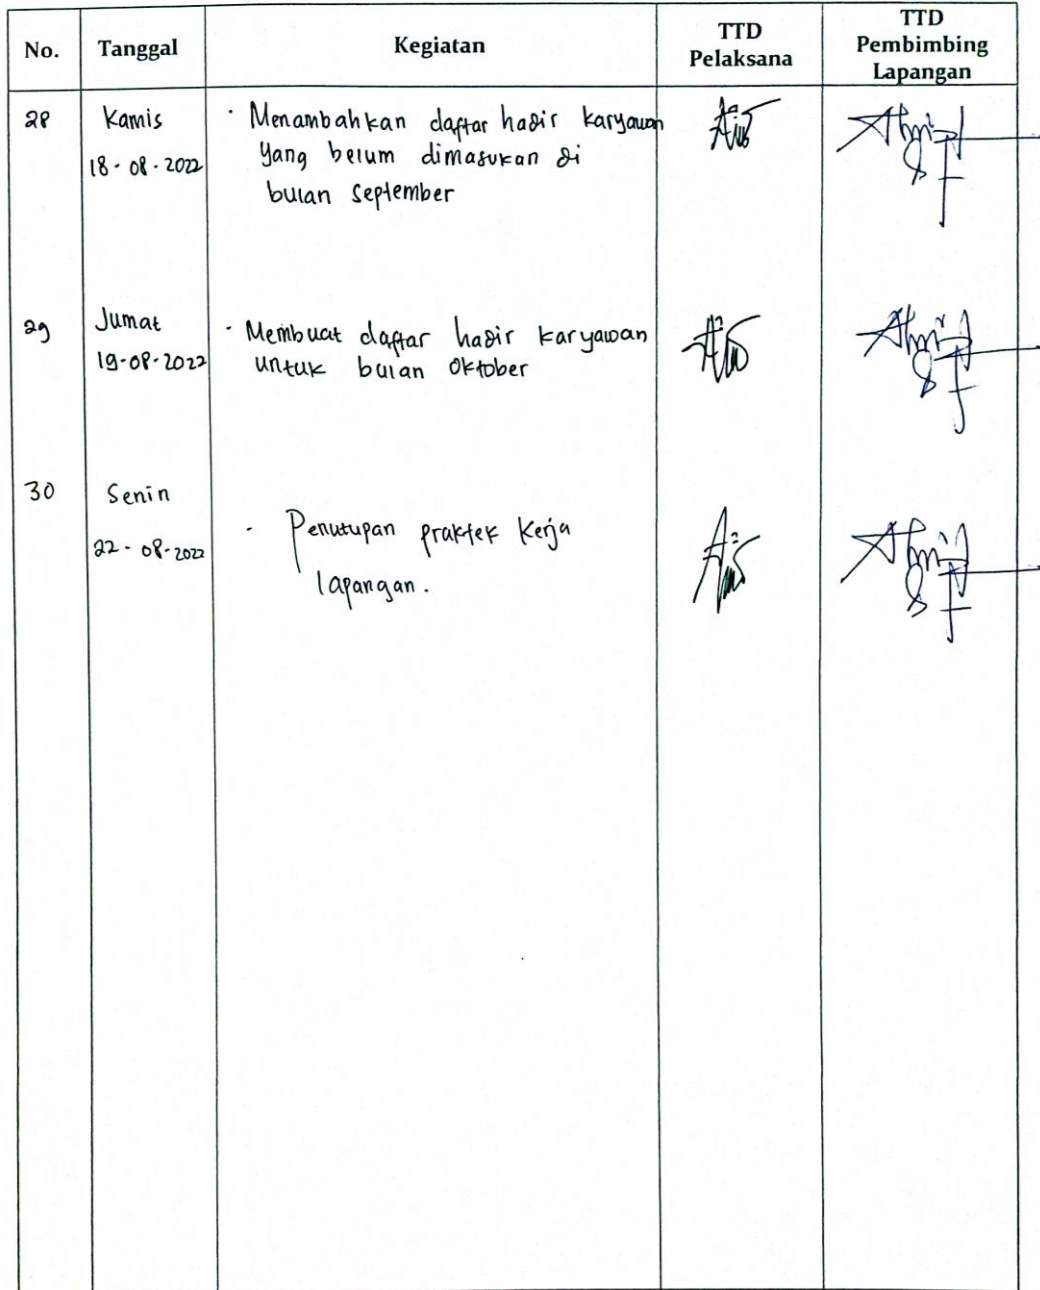 No. Tanggal Kegiatan TTD Pelaksana TTD Pembimbing Lapangan
28 Kamis · Menambahkan daftar hadir karyawan
18-08-2022 yang belum dimasukan di
bulan september
29 Jumat · Membuat daftar hadir karyawan
19-08-2022 untuk bulan oktober
30 Senin
22-08-2022 · Penutupan praktek kerja
lapangan.